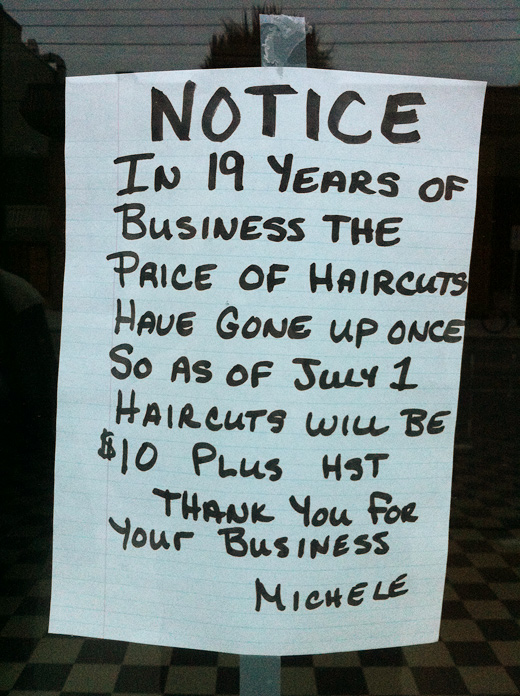 NOTICE
IN 19 YEARS OF
BUSINESS THE
PRICE OF HAIRCUTS
HAVE GONE UP ONCE
SO AS OF JULY 1
HAIRCUTS WILL BE
$10 PLUS HST
THANK YOU FOR
YOUR BUSINESS
MICHELE